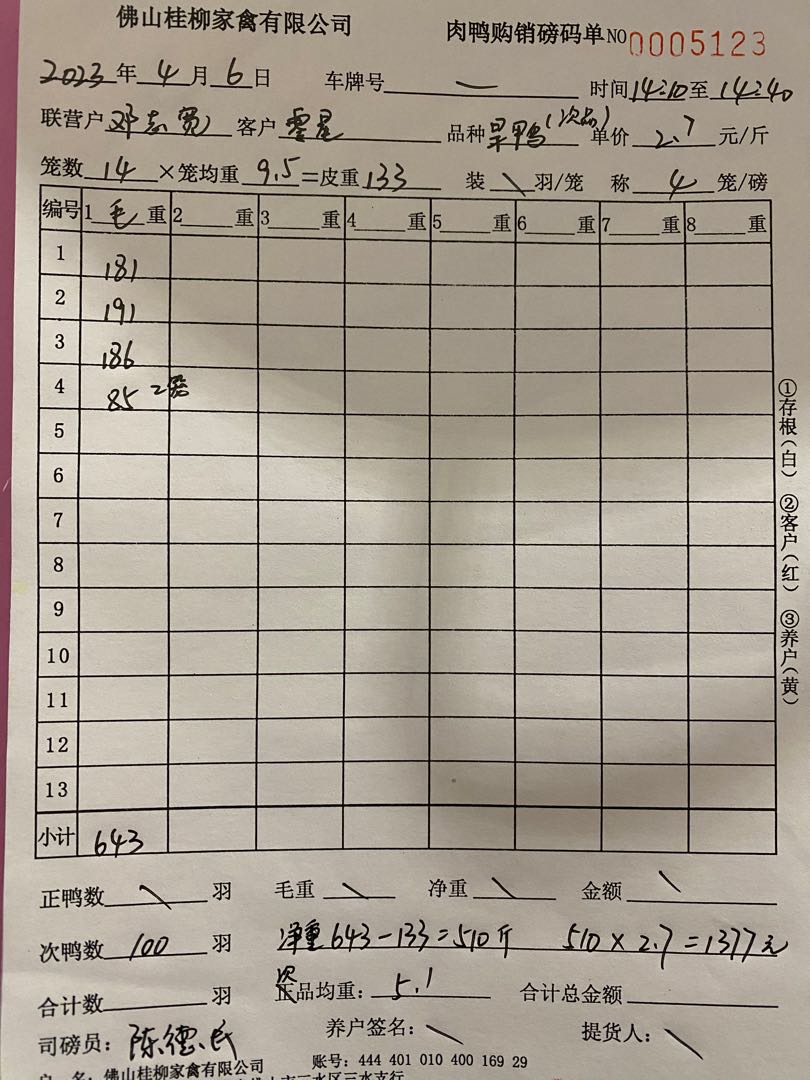 佛山桂柳家禽有限公司 肉鸭购销磅码单NO 0005123
2023年4月6日 车牌号 — 时间14:10至14:40
联营户 邓志宽 客户 零星 品种 旱鸭(次品) 单价 2.7 元/斤
笼数 14 ×笼均重 9.5 =皮重 133 装 \ 羽/笼 称 4 笼/磅
编号 1 毛 重 2 重 3 重 4 重 5 重 6 重 7 重 8 重
1 181
2 191
3 186
4 85 2笼
5
6
7
8
9
10
11
12
13
小计 643
正鸭数 \ 羽 毛重 \ 净重 \ 金额 \
次鸭数 100 羽 净重 643-133=510斤 510×2.7=1377元
合计数 羽 次品均重: 5.1 合计总金额
司磅员: 陈德 养户签名: \ 提货人: \
户 名: 佛山桂柳家禽有限公司 账号: 444 401 010 400 169 29
三水区三水支行
①存根(白) ②客户(红) ③养户(黄)